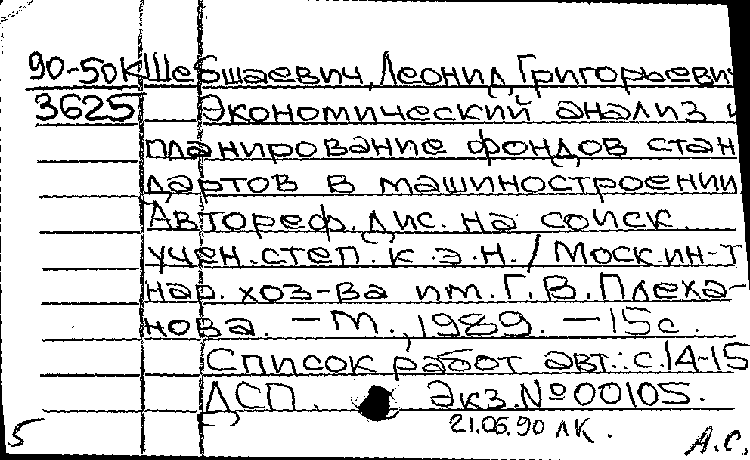 90-50К Шебшаевич, Леонид Григорьеви
3625 Экономический анализ и
планирование фондов стан
дартов в машиностроении
Автореф. дис. на соиск.
учен. степ. к.э.н. / Моск. ин-т
нар. хоз-ва им. Г. В. Плеха-
нова. – М., 1989. – 15 с.
Список работ авт.: с. 14-15
ДСП. Экз. № 00105.
21.06.90 ЛК.
5 А.С.